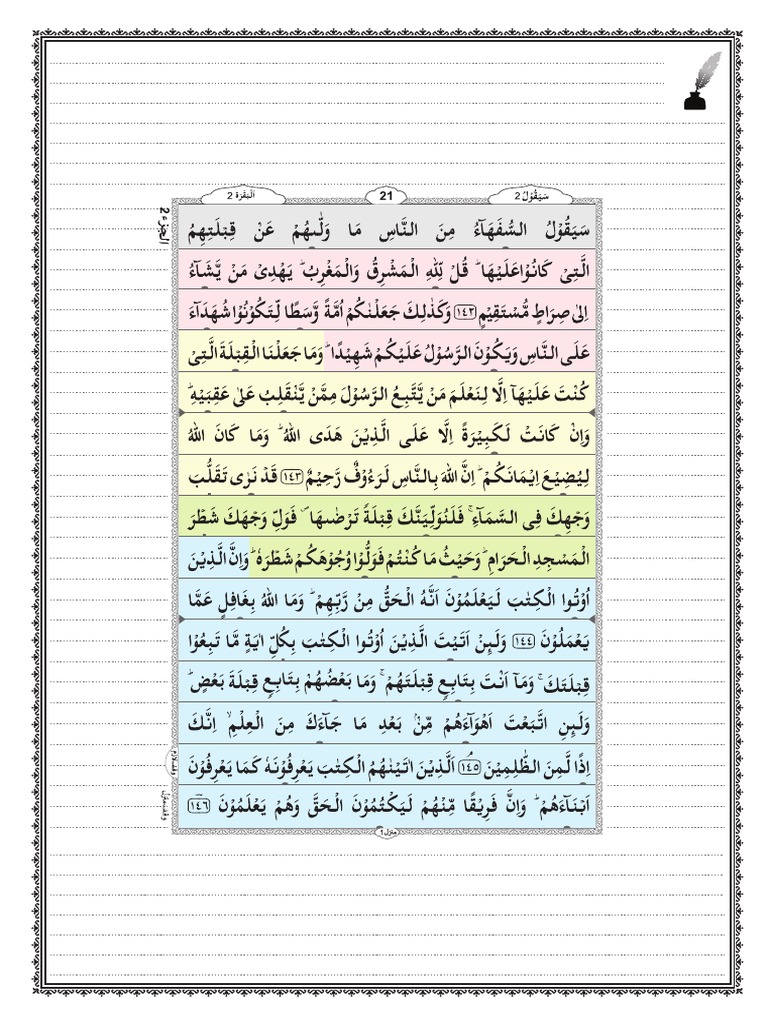 سَيَقُوْلُ 2
21
اَلْبَقَرَة 2
الجزء 2
سَيَقُوْلُ السُّفَهَآءُ مِنَ النَّاسِ مَا وَلّٰىهُمْ عَنْ قِبْلَتِهِمُ
الَّتِیْ كَانُوْا عَلَیْهَا ؕ قُلْ لِّلّٰهِ الْمَشْرِقُ وَالْمَغْرِبُ ؕ یَهْدِیْ مَنْ یَّشَآءُ
اِلٰی صِرَاطٍ مُّسْتَقِیْمٍ ۝۱۴۲ وَكَذٰلِكَ جَعَلْنٰكُمْ اُمَّةً وَّسَطًا لِّتَكُوْنُوْا شُهَدَآءَ
عَلَی النَّاسِ وَیَكُوْنَ الرَّسُوْلُ عَلَیْكُمْ شَهِیْدًا ؕ وَمَا جَعَلْنَا الْقِبْلَةَ الَّتِیْ
كُنْتَ عَلَیْهَاۤ اِلَّا لِنَعْلَمَ مَنْ یَّتَّبِعُ الرَّسُوْلَ مِمَّنْ یَّنْقَلِبُ عَلٰی عَقِبَیْهِ ؕ
وَاِنْ كَانَتْ لَكَبِیْرَةً اِلَّا عَلَی الَّذِیْنَ هَدَی اللّٰهُ ؕ وَمَا كَانَ اللّٰهُ
لِیُضِیْعَ اِیْمَانَكُمْ ؕ اِنَّ اللّٰهَ بِالنَّاسِ لَرَءُوْفٌ رَّحِیْمٌ ۝۱۴۳ قَدْ نَرٰی تَقَلُّبَ
وَجْهِكَ فِی السَّمَآءِ ۚ فَلَنُوَلِّیَنَّكَ قِبْلَةً تَرْضٰىهَا ۪ فَوَلِّ وَجْهَكَ شَطْرَ
الْمَسْجِدِ الْحَرَامِ ؕ وَحَیْثُ مَا كُنْتُمْ فَوَلُّوْا وُجُوْهَكُمْ شَطْرَهٗ ؕ وَاِنَّ الَّذِیْنَ
اُوْتُوا الْكِتٰبَ لَیَعْلَمُوْنَ اَنَّهُ الْحَقُّ مِنْ رَّبِّهِمْ ؕ وَمَا اللّٰهُ بِغَافِلٍ عَمَّا
یَعْمَلُوْنَ ۝۱۴۴ وَلَىِٕنْ اَتَیْتَ الَّذِیْنَ اُوْتُوا الْكِتٰبَ بِكُلِّ اٰیَةٍ مَّا تَبِعُوْا
قِبْلَتَكَ ۚ وَمَاۤ اَنْتَ بِتَابِعٍ قِبْلَتَهُمْ ۚ وَمَا بَعْضُهُمْ بِتَابِعٍ قِبْلَةَ بَعْضٍ ؕ
وَلَىِٕنِ اتَّبَعْتَ اَهْوَآءَهُمْ مِّنْۢ بَعْدِ مَا جَآءَكَ مِنَ الْعِلْمِ ۙ اِنَّكَ
اِذًا لَّمِنَ الظّٰلِمِیْنَ ۝۱۴۵ اَلَّذِیْنَ اٰتَیْنٰهُمُ الْكِتٰبَ یَعْرِفُوْنَهٗ كَمَا یَعْرِفُوْنَ
اَبْنَآءَهُمْ ؕ وَاِنَّ فَرِیْقًا مِّنْهُمْ لَیَكْتُمُوْنَ الْحَقَّ وَهُمْ یَعْلَمُوْنَ ۝۱۴۶
منزل ۱